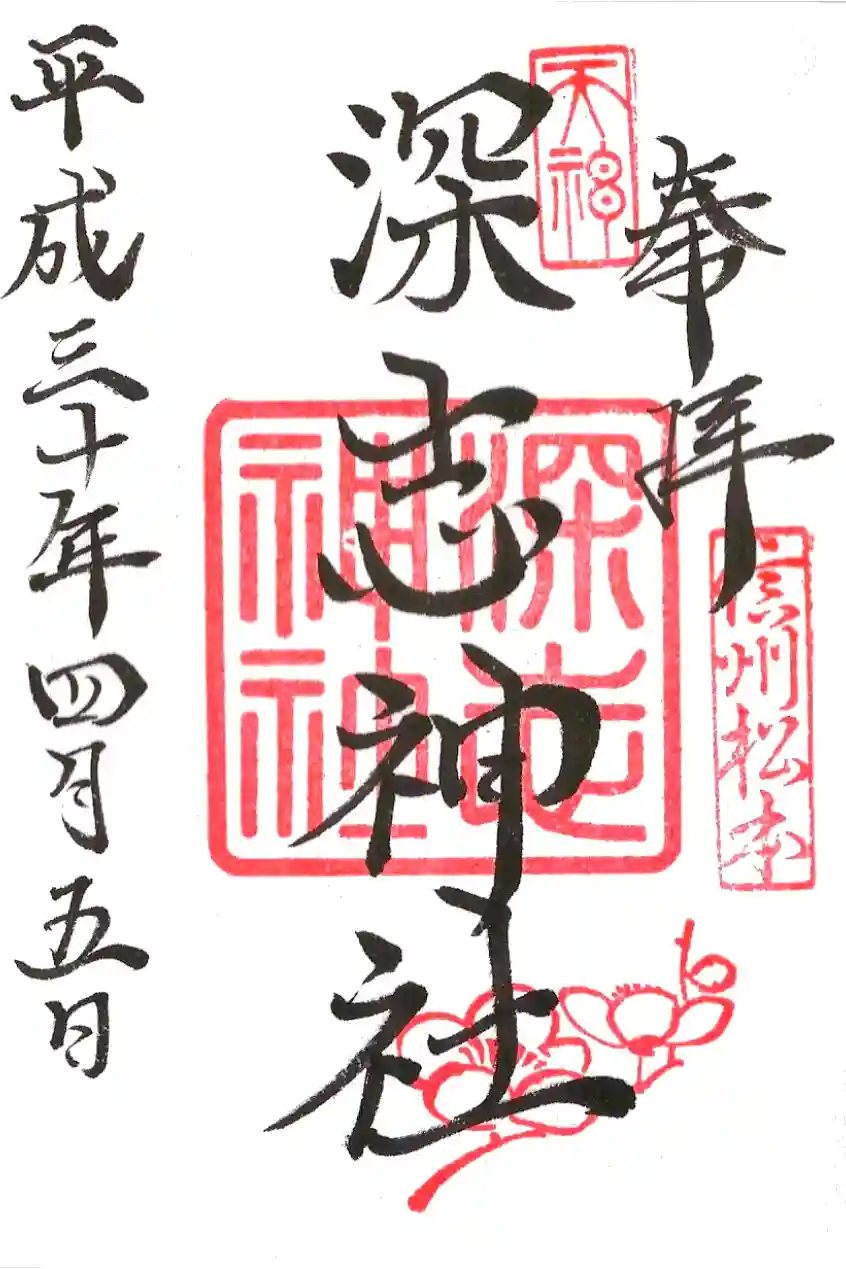 奉拝
信州松本
天神
深志神社
深志神社
平成三十年四月五日